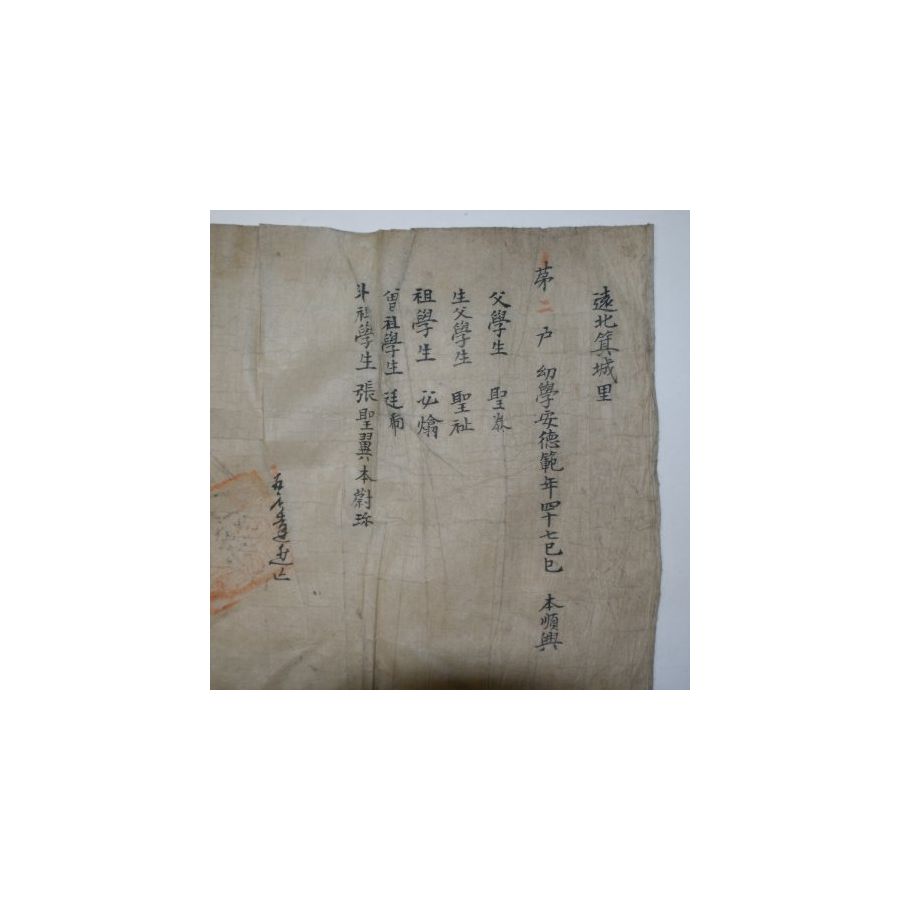 遠北箕城里
第二戶 幼學安德範年四十七己巳 本順興
父學生 聖泰
生父學生 聖祉
祖學生 必熻
曾祖學生 廷
外祖學生張聖翼本蔚珍